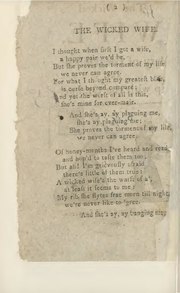 ( 2 )
THE WICKED WIFE.
I thought when first I got a wife,
a happy pair we'd be,
But she proves the torment of my life,
we never can agree.
For what I thought my greatest bliss,
is curse beyond compare;
and yet the worst of all is this,
she's mine for ever-mair.
And she's ay, ay plaguing me,
she's ay plaguing me;
She proves the torment of my life,
we never can agree.
Of honey-months I've heard and read,
and hop'd to taste them too;
But ah! I'm grievously afraid
there's little of them true:
A wicked wife's the warst of a',
at least it seems to me;
My rib she flytes frae morn till night,
we're never like to 'gree.
And she's ay, ay banging me,